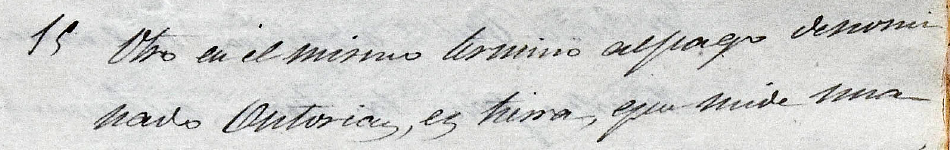 15 Otro en el mismo termino al pago denomi
nado Ontorias, es tierra, que mide una